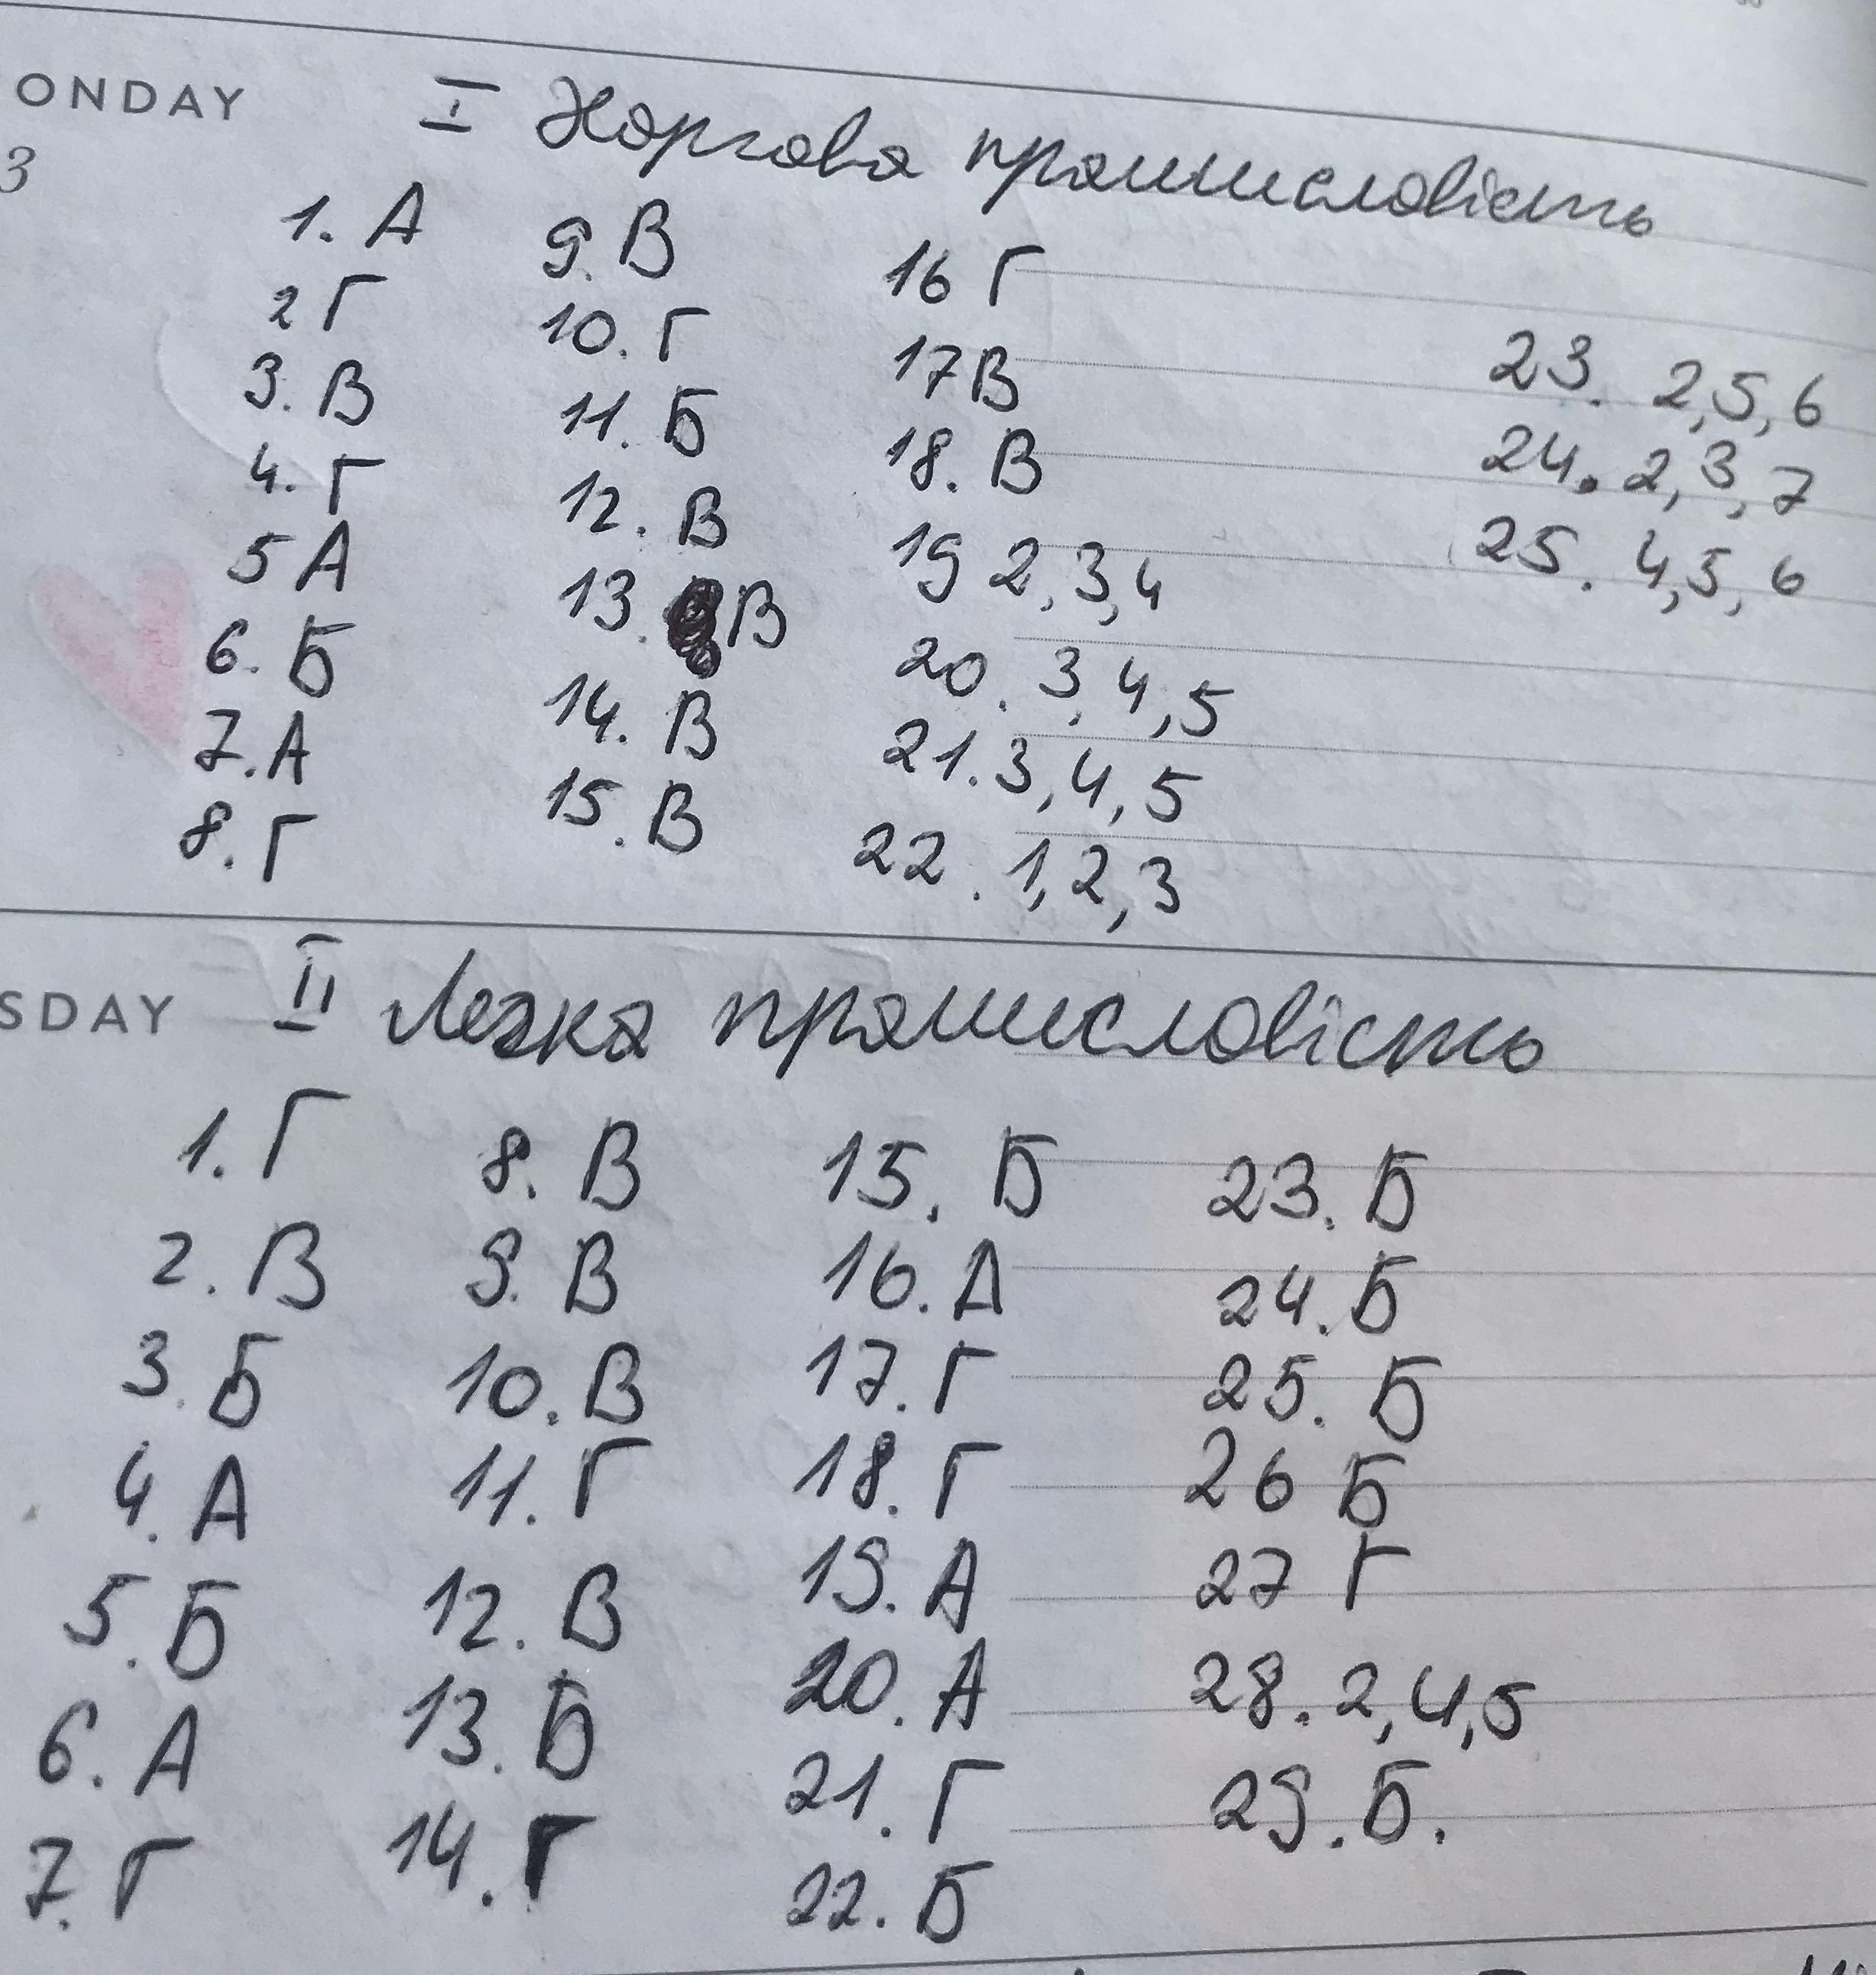 ONDAY I Харчова промисловість
3
1. А
2 Г
3. В
4. Г
5 А
6. Б
7. А
8. Г
9. В
10. Г
11. Б
12. В
13. В
14. В
15. В
16 Г
17 В
18. В
19 2,3,4
20. 3,4,5
21. 3,4,5
22. 1,2,3
23. 2,5,6
24. 2,3,7
25. 4,5,6
SDAY II Легка промисловість
1. Г
2. В
3. Б
4. А
5. Б
6. А
7. Г
8. В
9. В
10. В
11. Г
12. В
13. Б
14. Г
15. Б
16. А
17. Г
18. Г
19. А
20. А
21. Г
22. Б
23. Б
24. Б
25. Б
26 Б
27 Г
28. 2,4,5
29. Б.